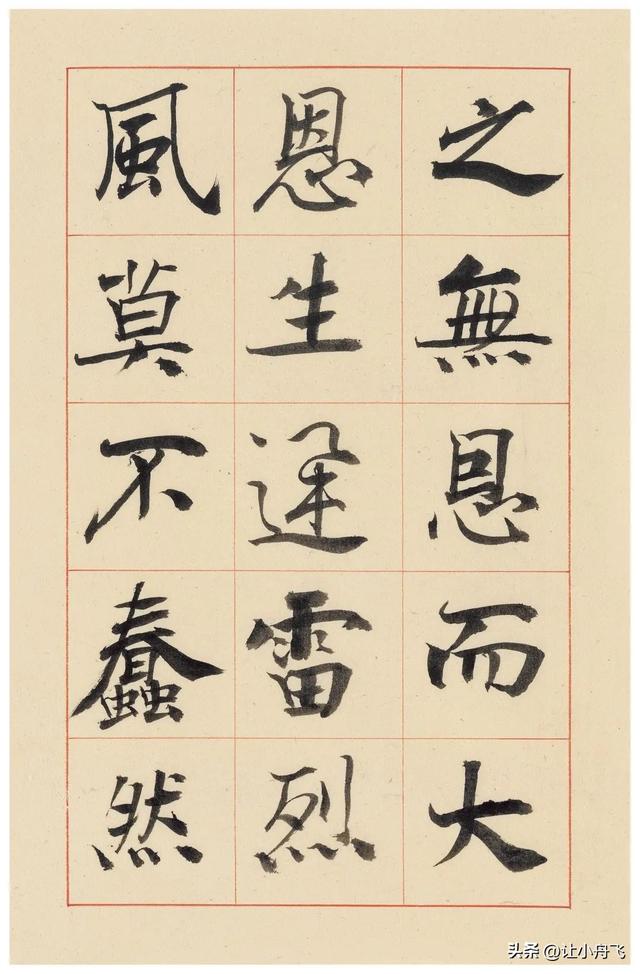 之無恩而大
恩生迅雷烈
風莫不蠢然
头条 @让小舟飞